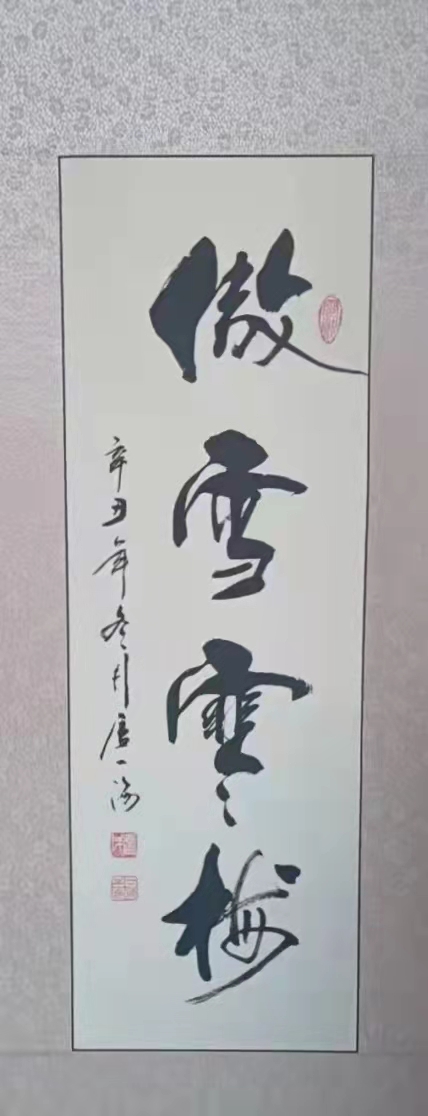 傲雪寒梅
辛丑年冬月